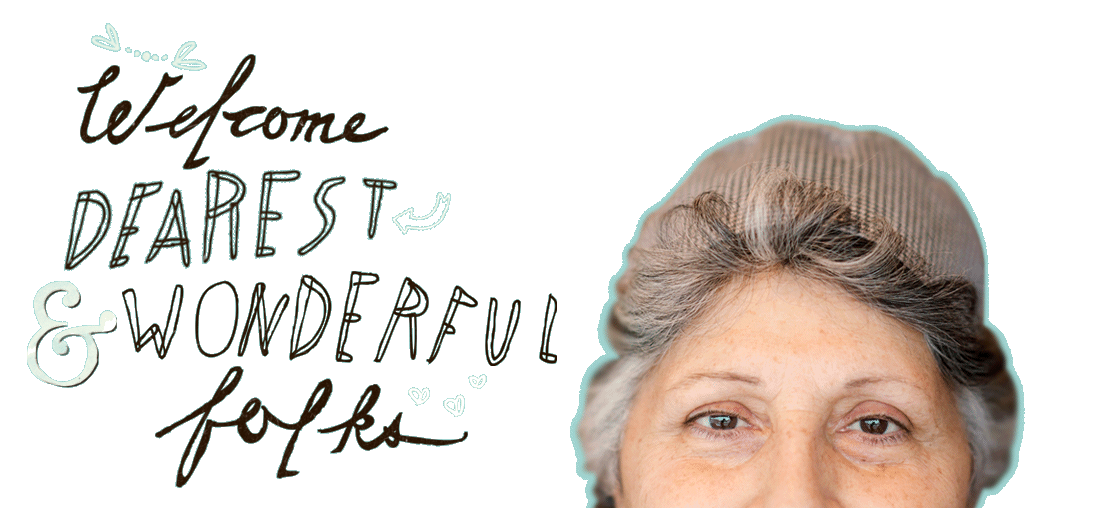 Welcome
DEAREST
& WONDERFUL
folks